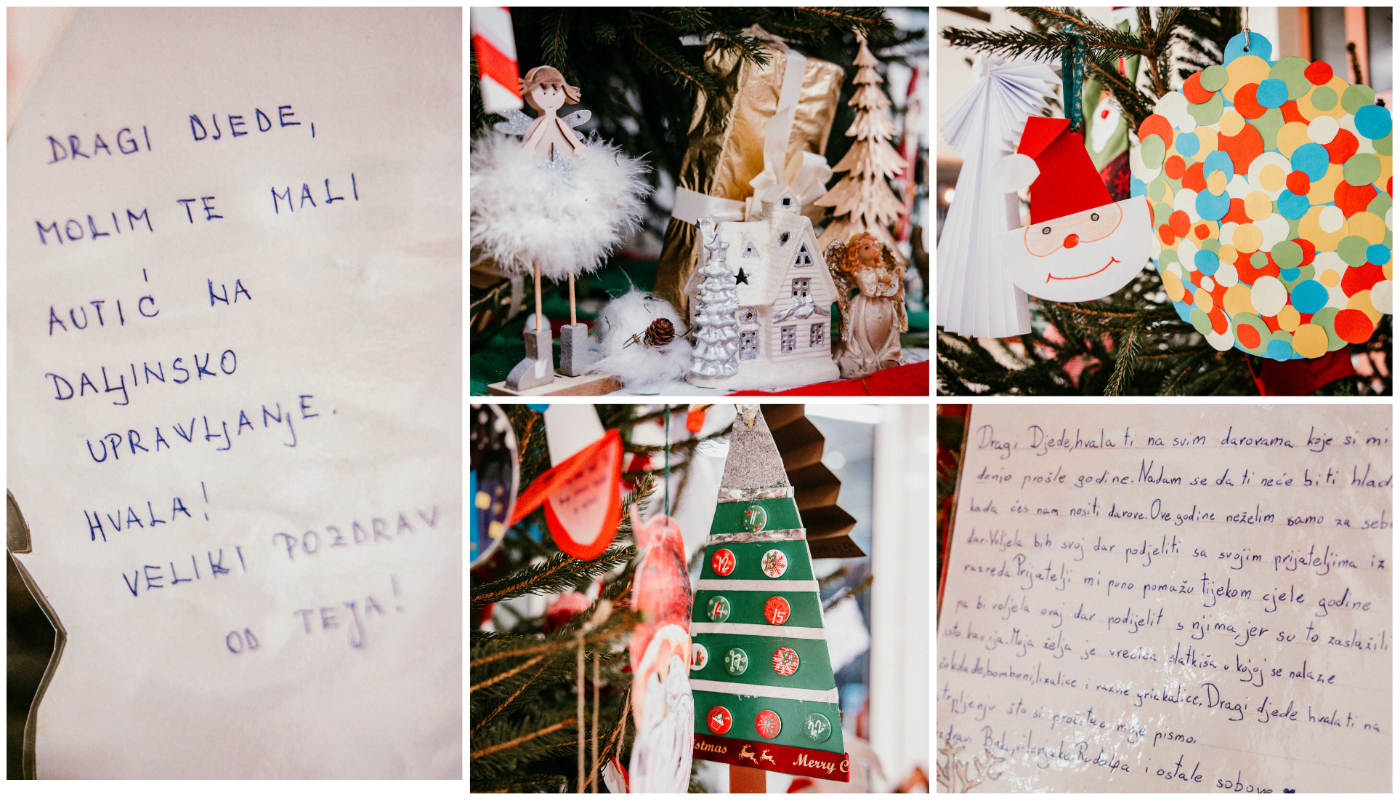 DRAGI DJEDE,
MOLIM TE MALI
AUTIĆ NA
DALJINSKO
UPRAVLJANJE.
HVALA!
VELIKI POZDRAV
OD TEJA!
11
12
14
15
13
22
stmas
Merry C
Dragi Djede, hvala ti na svim darovama koje si mi
donio prošle godine. Nadam se da ti neće biti hlad
kada ćeš nam nositi darove. Ove godine neželim samo za sebe
dar. Voljela bih svoj dar podjeliti sa svojim prijateljima iz
razreda. Prijatelji mi puno pomažu tijekom cjele godine
pa bi voljela ovaj dar podijelit s njima, jer su to zaslužili
isto kao i ja. Moja želja je vrećica slatkiša u kojoj se nalaze
čokolade, bomboni, lizalice i razne grickalice. Dragi djede hvala ti na
strpljenju što si pročitao moje pismo.
Rudolfa i ostale sobove